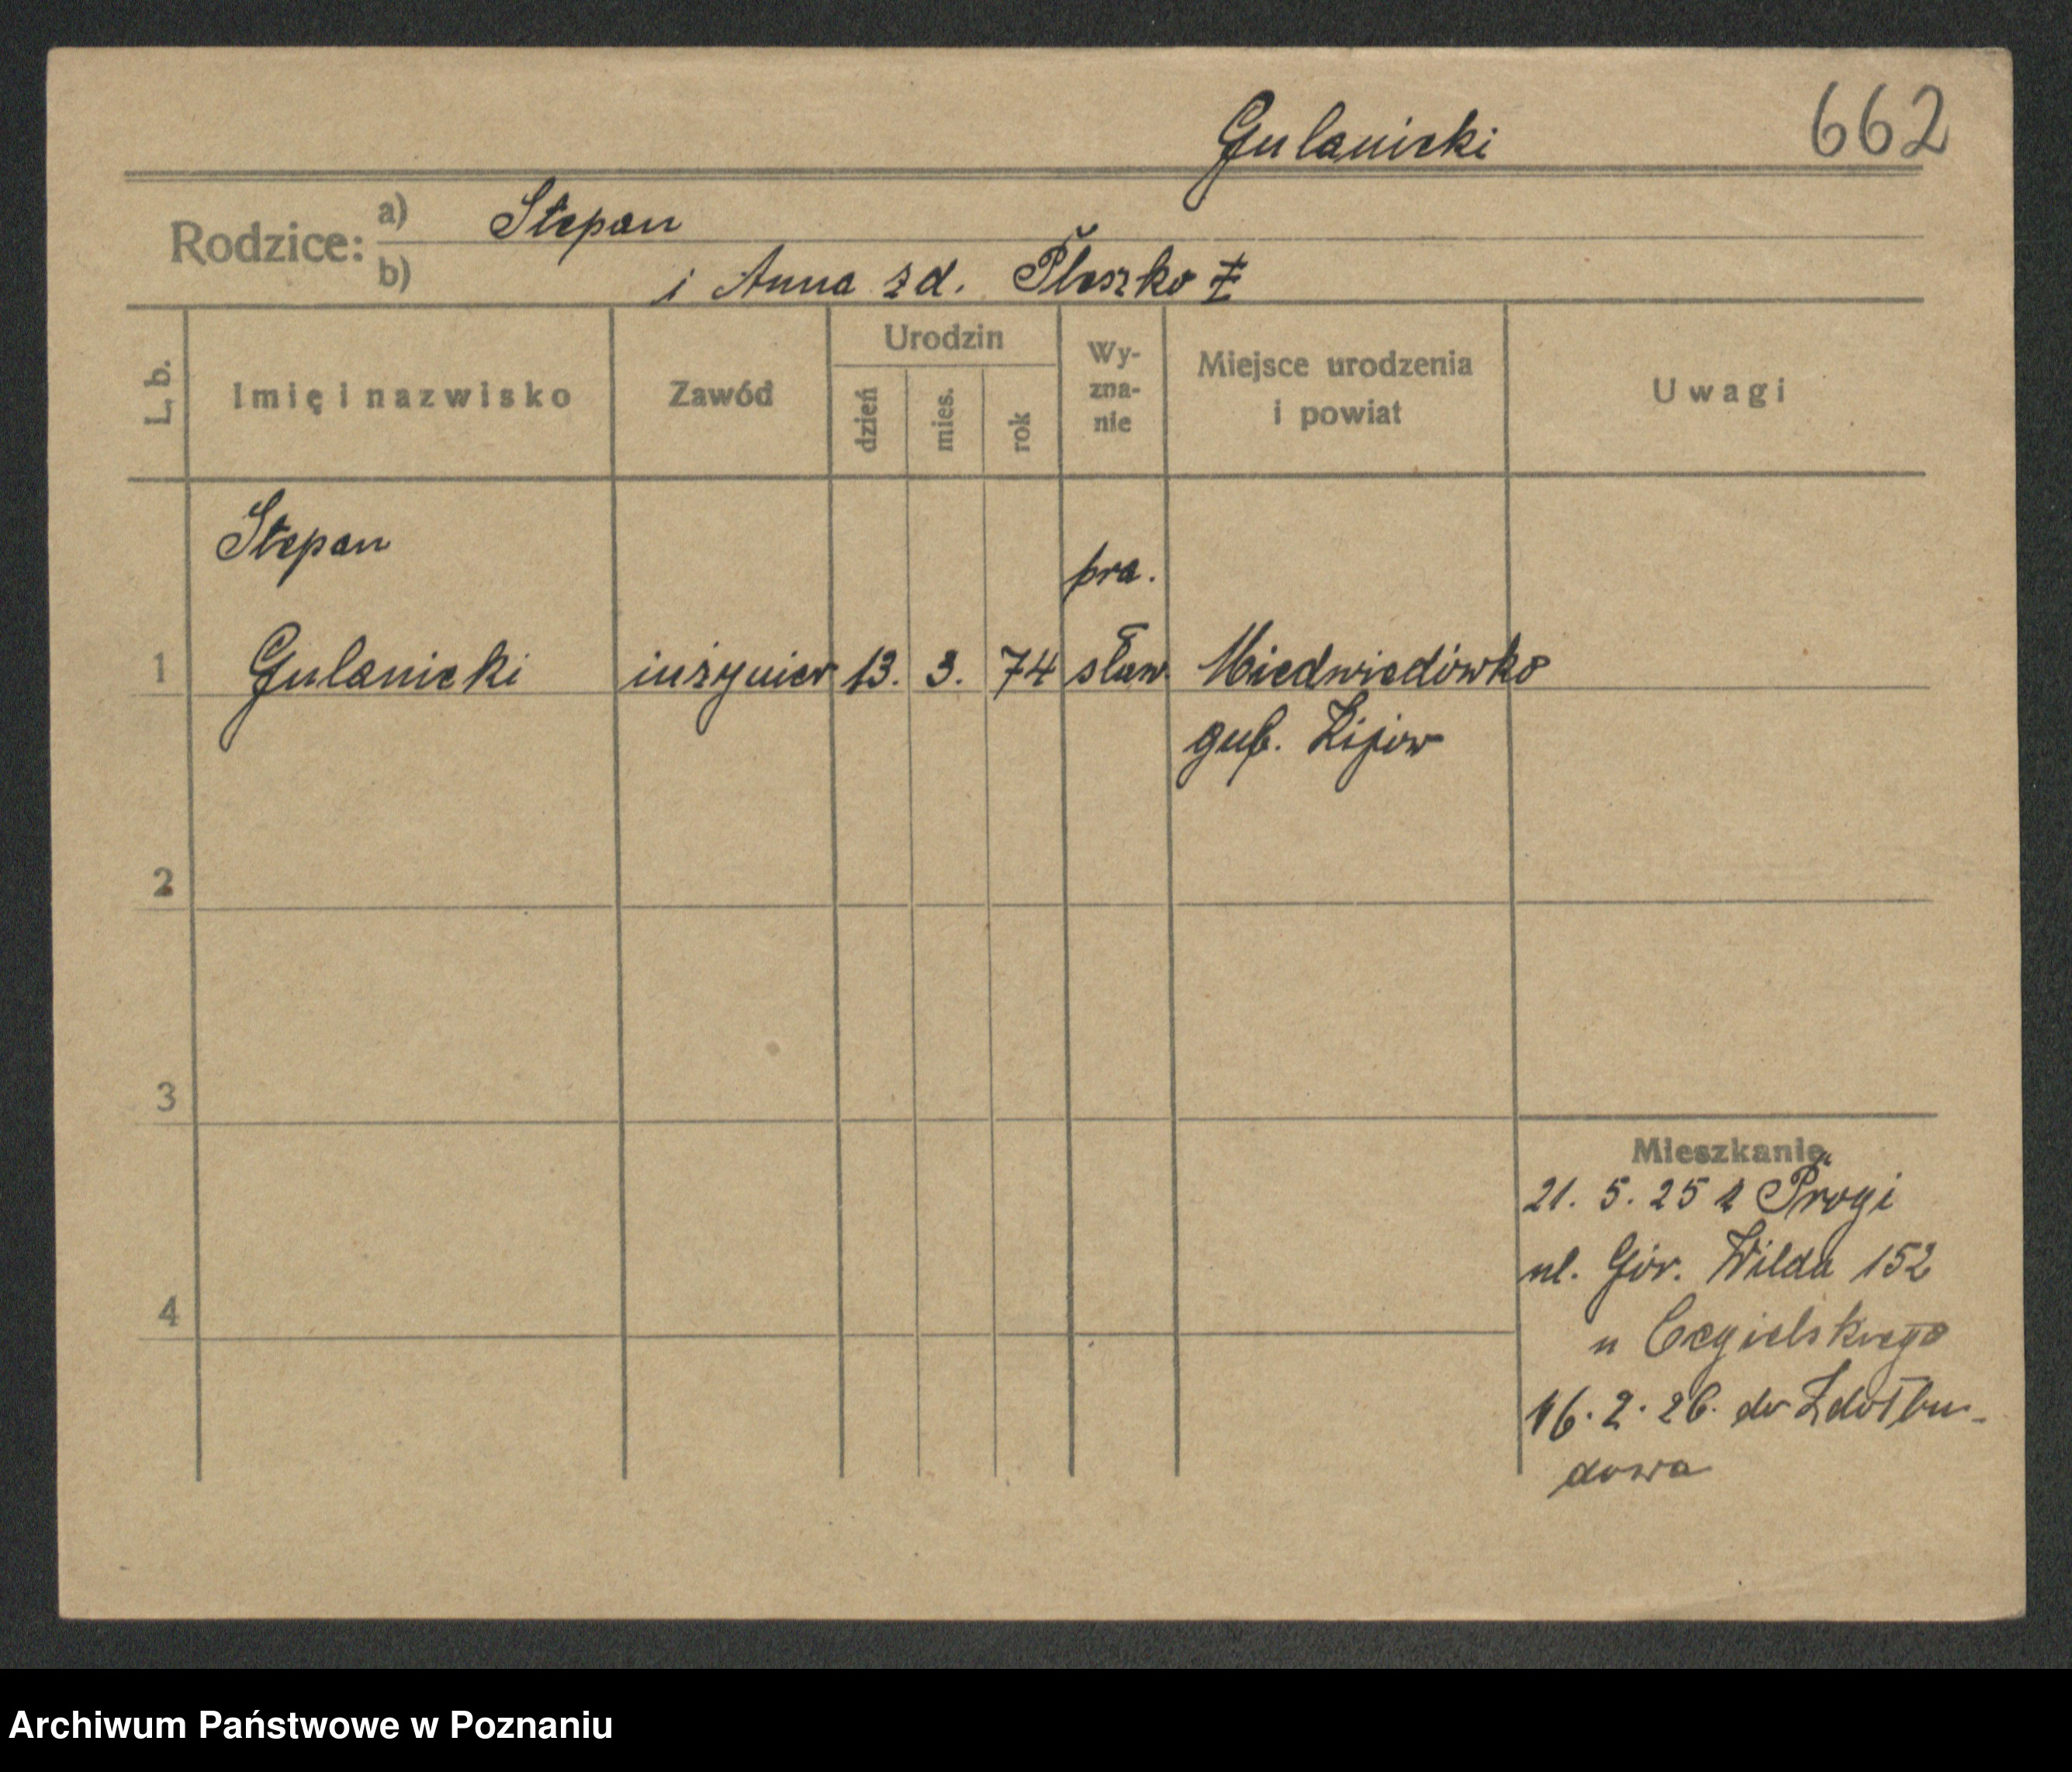 Gulanicki
662
Rodzice: a) Stepan
b) i Anna zd. Pleszko ‡
L. b.
Imię i nazwisko
Zawód
Urodzin
dzień
mies.
rok
Wy-
zna-
nie
Miejsce urodzenia
i powiat
Uwagi
Stepan
pra.
1 Gulanicki inżynier 13. 3. 74 sław. Miedwiedówko
gub. Kijów
2
3
Mieszkanie
21. 5. 25 z Pragi
ul. Gór. Wilda 152
4
u Cegielskiego
16. 2. 26. do Zdołbu-
dowa
Archiwum Państwowe w Poznaniu